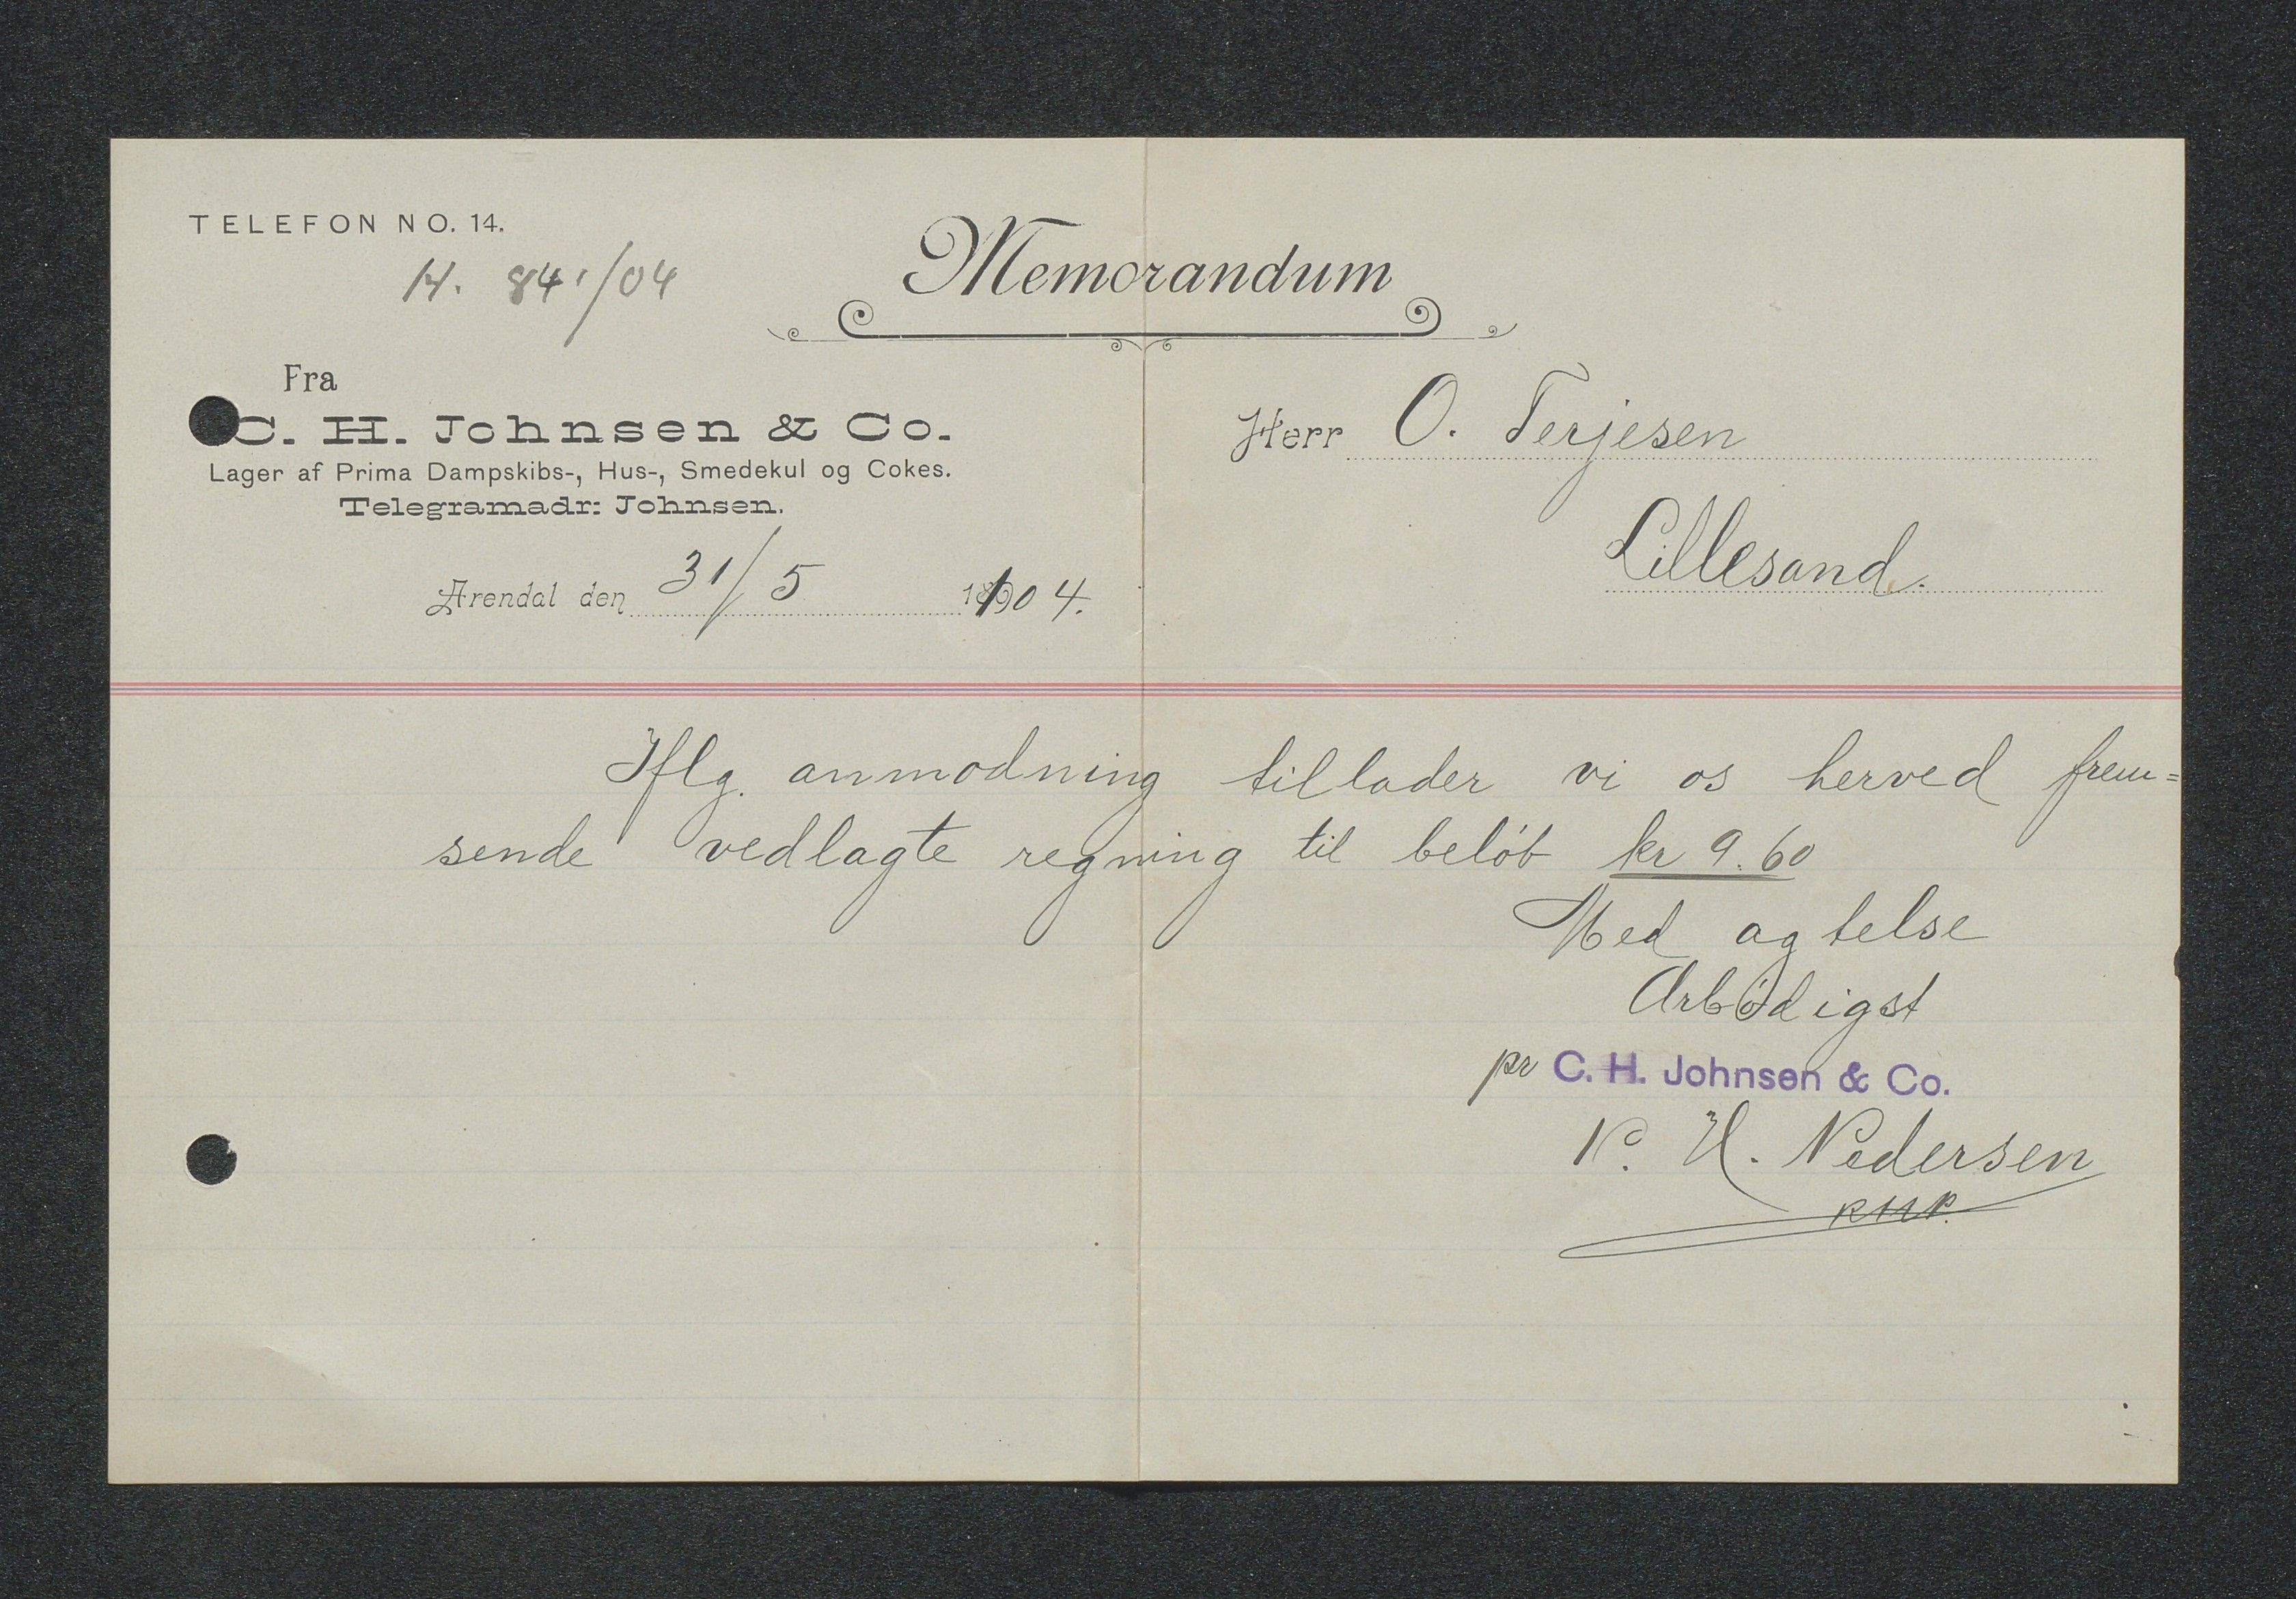 TELEFON NO. 14.
H. 841/04
Memorandum
Fra
C. H. Johnsen & Co.
Lager af Prima Dampskibs-, Hus-, Smedekul og Cokes.
Telegramadr: Johnsen.
Arendal den 31/5 1904.
Herr O. Terjesen
Lillesand.
Iflg. anmodning tillader vi os herved frem=
sende vedlagte regning til beløb kr 9.60
Med agtelse
Ærbødigst
pr C. H. Johnsen & Co.
K. H. Pedersen